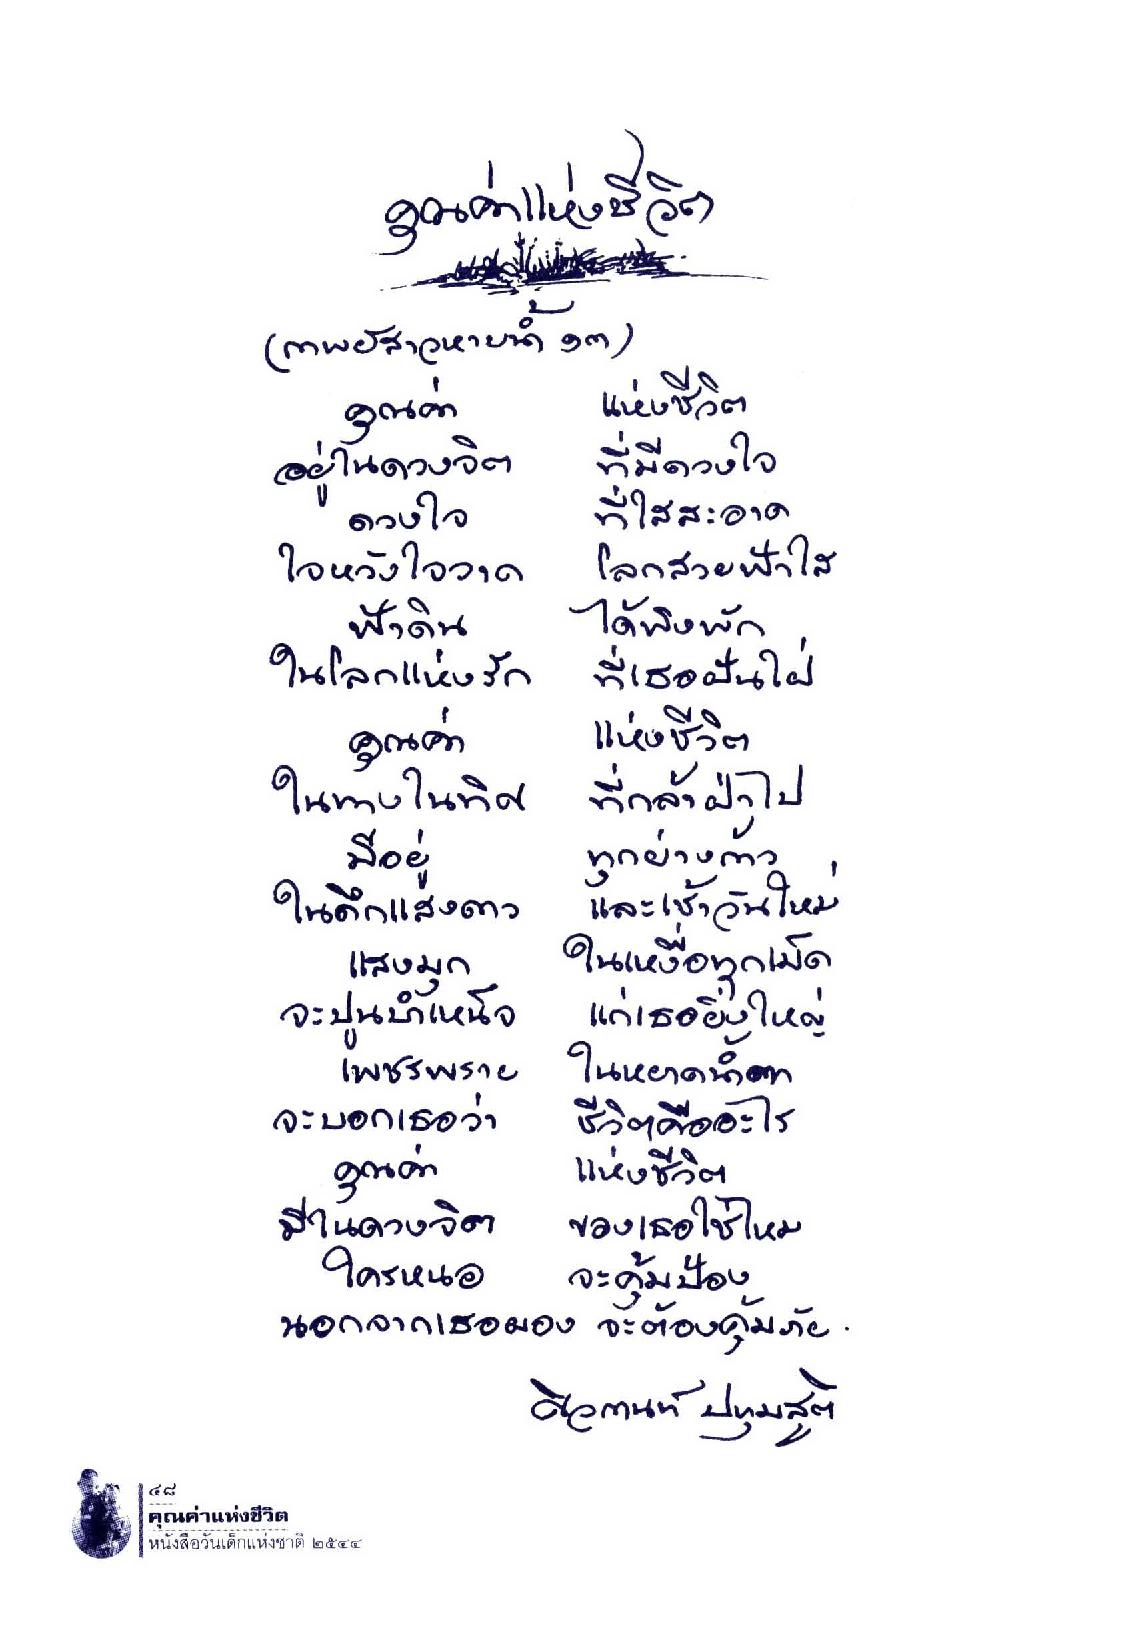 คุณค่าแห่งชีวิต
(กาพย์สาวหายน้ำ ๑๓)
คุณค่า แห่งชีวิต
อยู่ในดวงจิต ที่มีดวงใจ
ดวงใจ ที่ใสสะอาด
ใจหวังใจวาด โลกสวยฟ้าใส
ฟ้าดิน ได้พิงพัก
ในโลกแห่งรัก ที่เธอฝันใฝ่
คุณค่า แห่งชีวิต
ในทางในทิศ ที่กล้าฝ่าไป
มีอยู่ ทุกย่างก้าว
ในดึกแสงดาว และเช้าวันใหม่
แสงมุก ในเหงื่อทุกเม็ด
จะปูนบำเหน็จ แก่เธอยิ่งใหญ่
เพชรพราย ในหยาดน้ำตา
จะบอกเธอว่า ชีวิตคืออะไร
คุณค่า แห่งชีวิต
มีในดวงจิต ของเธอใช่ไหม
ใครหนอ จะคุ้มป้อง
นอกจากเธอผอง จะต้องคุ้มภัย.
ศิวกานท์ ปทุมสูติ
๔๘
คุณค่าแห่งชีวิต
หนังสือวันเด็กแห่งชาติ ๒๕๔๔